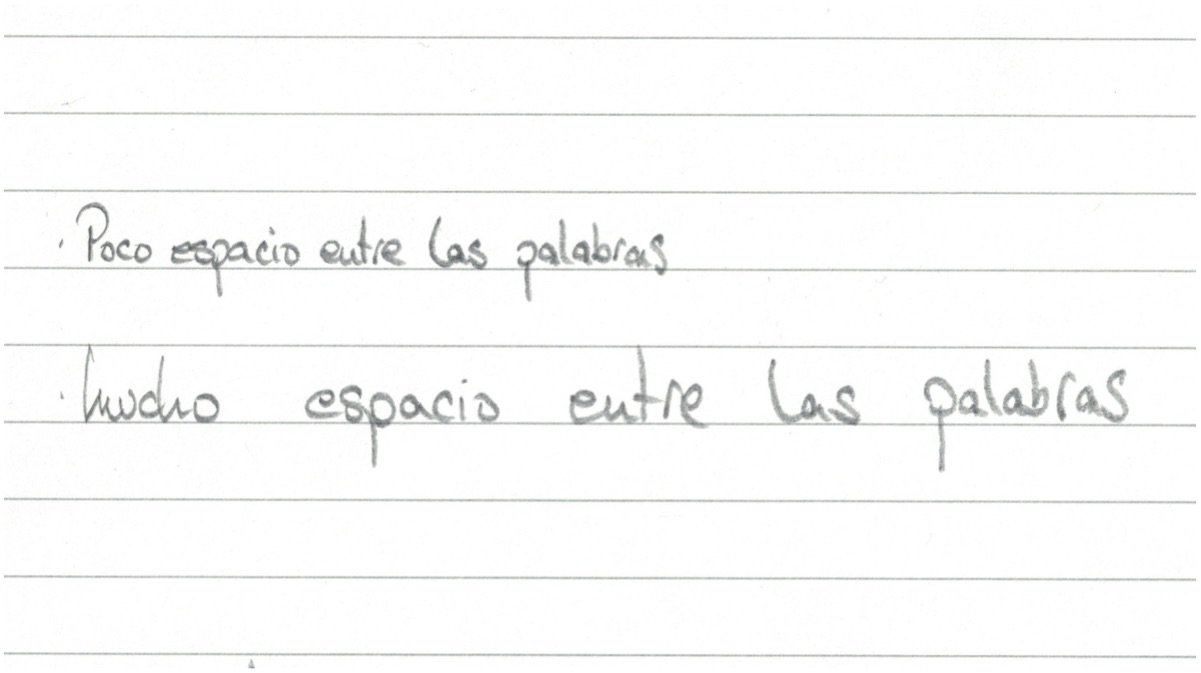 · Poco espacio entre las palabras
· Mucho espacio entre las palabras